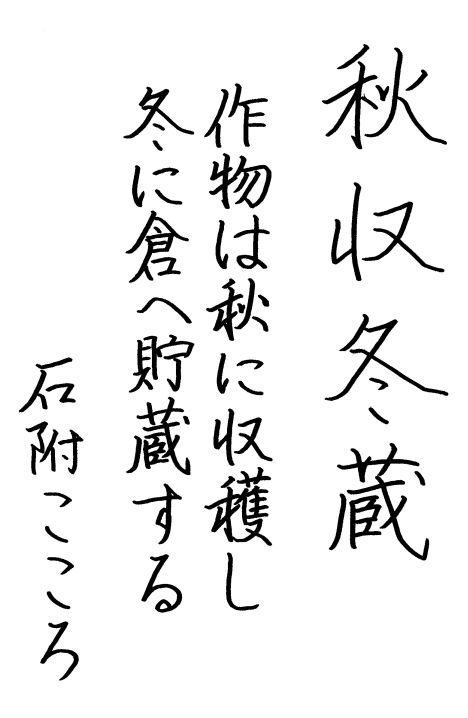 秋収冬蔵
作物は秋に収穫し
冬に倉へ貯蔵する
石附こころ